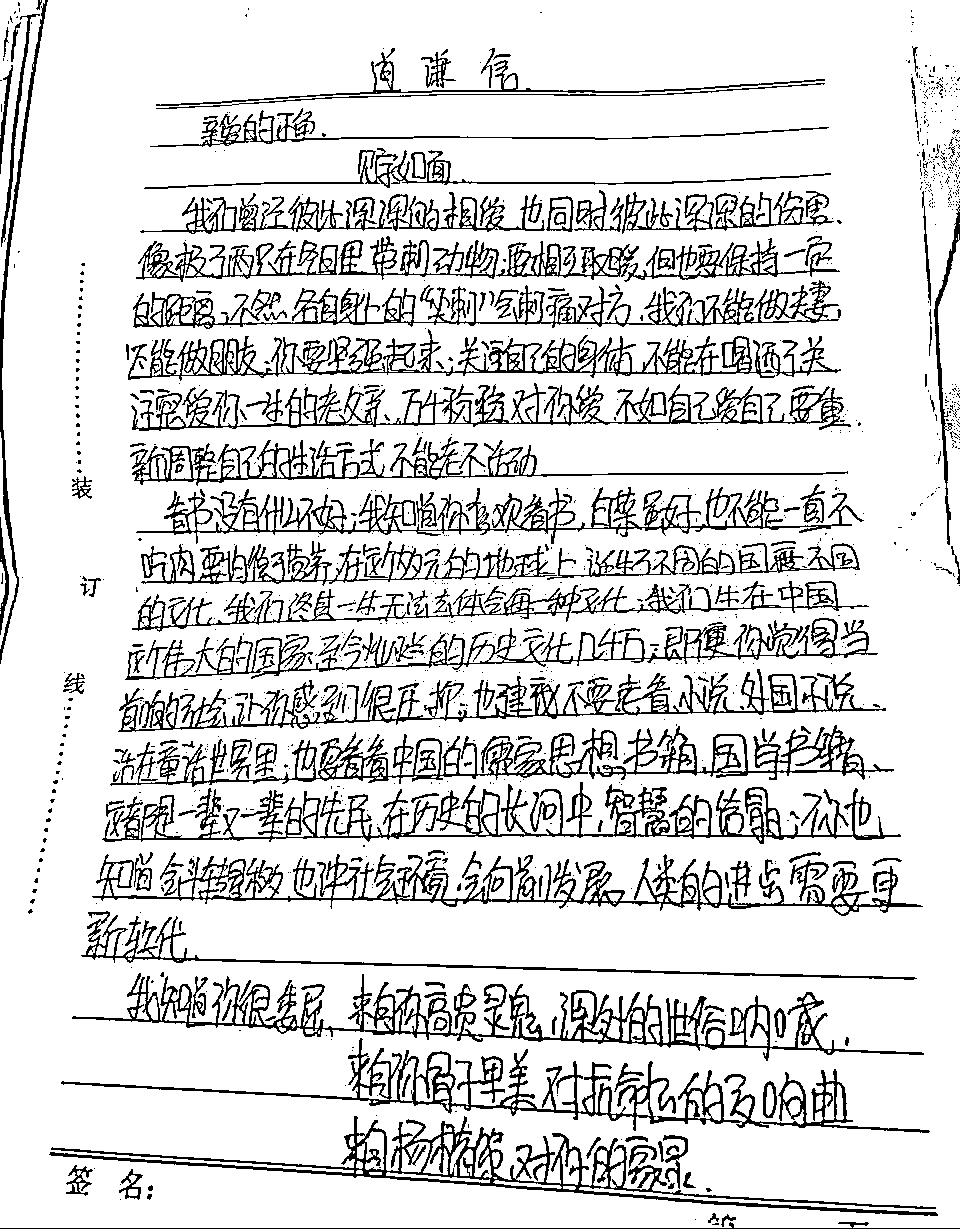 道谦信
亲爱的正鱼.
见字如面.
我们曾经彼此深深的相爱也同时彼此深深的伤害.
像极了两只在冬日里带刺动物,要相互取暖,但也要保持一定
的距离,不然各自身上的“尖刺”会刺痛对方.我们不能做夫妻,
还能做朋友,你要坚强起来,关注自己的身体,不能在喝酒了关
注疼爱你一生的老父亲、对你爱不如自己爱自己要重
新调整自己的生活方式不能老不活动
看书没有什么不好,我知道你喜欢看书,白菜虽好,也不能一直不
吃肉要均衡营养,在这个多元的地球上诞生了不同的国度不同
的文化,我们终其一生无法去体会每一种文化,我们生在中国
这个伟大的国家至今灿烂的历史文化几千万,即便你觉得当
前的社会让你感到很压抑,也建议不要老看小说.外国小说.
活在童话世界里,也要看看中国的儒家思想书籍.国学书籍、
这都是一辈又一辈的先民,在历史的长河中,智慧的结晶,你也
知道会斗转星移,也社会环境会向前发展,人类的进步需要更
新软化.
我知道你很委屈、来自你高贵灵魂,深处的世俗呐喊.
来自你骨子里美对抗命运的交响曲
来自杨对你的
签 名:
装
订
线